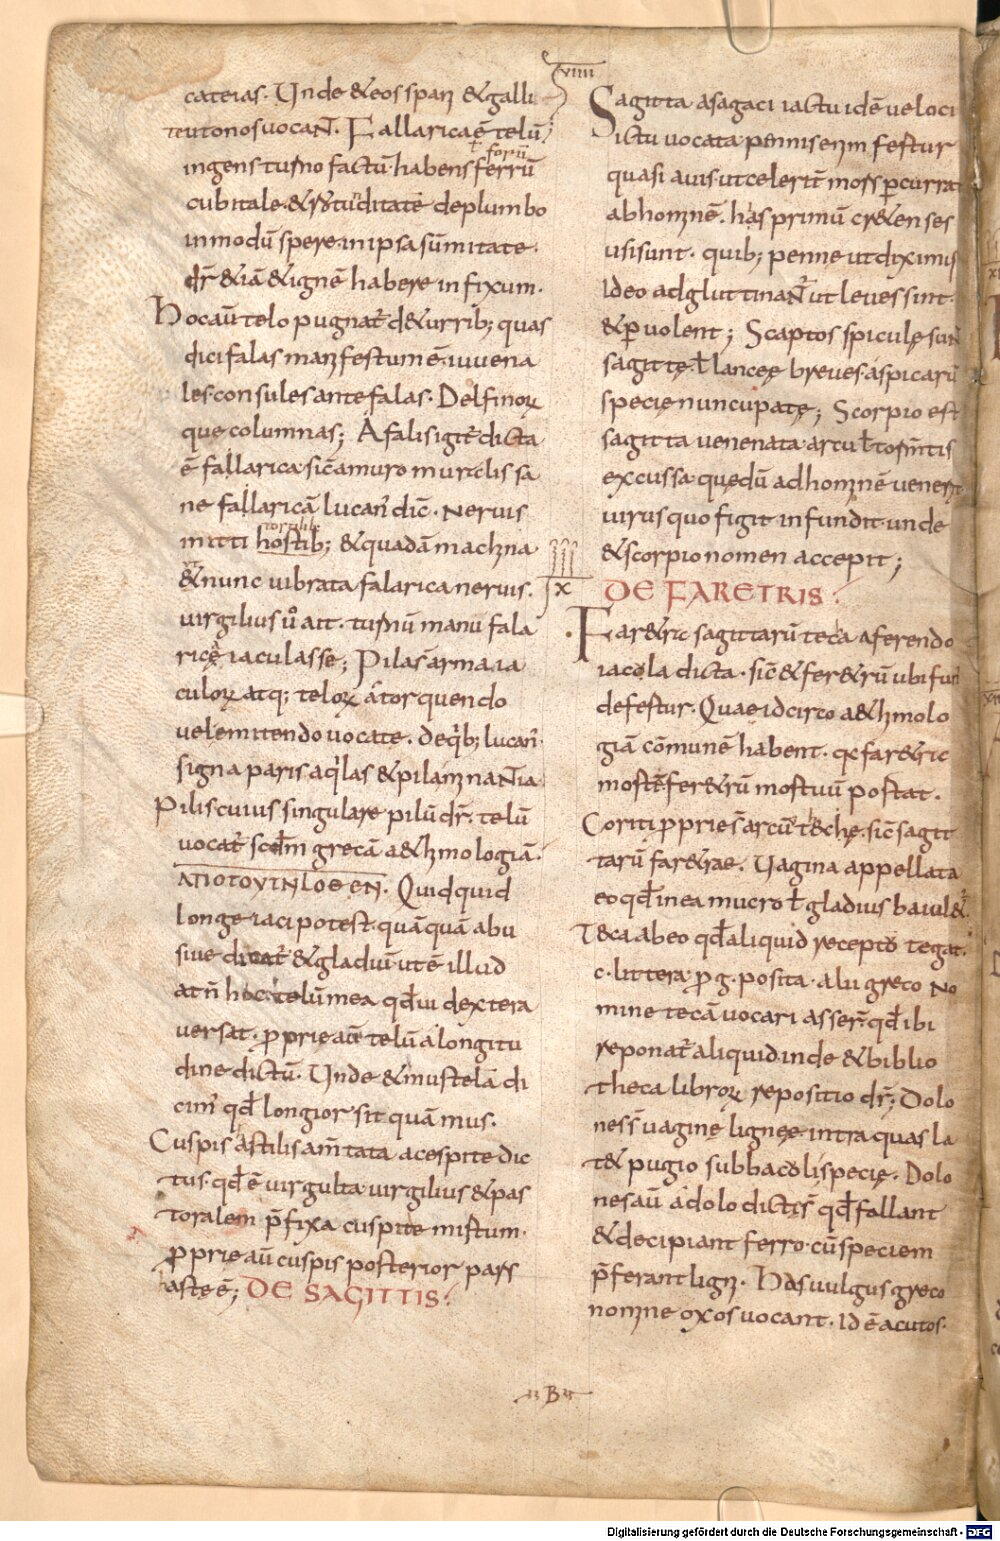 cateias. Unde & eos span & galli
teutonos vocaN̄. Fallarica ē telū
ingens turno factū. habens ferrū
cubitale. & rotunditatē de plumbo
in modū spere in ipsa sūmitate.
dr̄ & iā & ignē habere infixum.
Hoc aū telo pugnat̄ de turrib; quas
dici falas manifestum ē. iuuena
les consules ante falas. Delfinorꝝ
que columnas; A falis igit̄ dicta
ē fallarica sic̄ a muro muralis sa
ne fallaricā lucan̄ dic̄. Neruis
mitti hostib; & quadā machina
& nunc uibrata falarica neruis.
uirgilius ū ait. turnū manu fala
ricę iaculasse; Pila s̄ arma ia
culorꝝ atq; telorꝝ a torquendo
uel emitendo uocate. de qͥb; lucan̄
signa paris aqͥlas & pila minaN̄ia
Pilis cuius singulare pilū dr̄. telū
uocat̄ scdm̄ grecā aethimologiā.
ΑΠΟ ΤΟΥ ΤΝLΟΘΕΝ. Quidquid
longe iaci potest. quāquā abu
siue dicat̄ & gladiū ut ē illud
at n̄ hoc telū mea qđ ui dextera
uersat. ꝓprie aūt telū a longitu
dine dictū. Unde & mustelā di
cim̄ qđ longior sit quā mus.
Cuspis astilis am̄tata a cespite dic
tus. qđ ē uirgulta uirgilius & pas
toralem p̄fixa cuspite mirtum.
ꝓprie aū cuspis posterior pars
astę ē; DE SAGITTIS:
VIIII
Sagitta a sagaci iactu idē ueloci
ictu uocata pennis enim fertur
quasi auis ut celerit̄ mors ꝑcurrat
ab hominē. has primū cr&enses
usi sunt. quib; penne ut diximus
ideo adgluttinaN̄ ut leues sint
& ꝑuolent; Scaptos spiculę suN̄
sagittę ł lancee breues a spicarū
specie nuncupatę; Scorpio est
sagitta uenenata arcu ł tormtis
excussa. quę dū ad hominē uenerit
uirus quo figit infundit unde
& scorpio nomen accepit;
X DE FARETRIS:
Far&ric sagittarū teca a ferendo
iacola dicta. sic̄ & fer&rū ubi fun̄
defertur. Quae idcirco a&himolo
giā cōmunē habent. qͥ far&ric
mortē fer&rū mortuū portat.
Coriti ꝓprie s̄ arcū t&chę. sic̄ sagit
tarū far&rae. Uagina appellata
eo qđ in ea mucro ł gladius baiul&.
T&ca ab eo qđ aliquid recepto tegat.
c. littera ꝓ g. posita. alii greco no
mine tecā uocari asser̄. qđ ibi
reponat̄ aliquid. inde & biblio
theca librorꝝ repositio dr̄; Dolo
nes s̄ uagine lignee intra quas la
t& pugio sub bacoli specię. Dolo
nes aū a dolo dicti s̄ qđ fallant
& decipiant ferro. cū speciem
p̄ferant ligni. Hos uulgus greco
nomine oxos uocant. Id ē acutos.
B
Digitalisierung gefördert durch die Deutsche Forschungsgemeinschaft - DFG